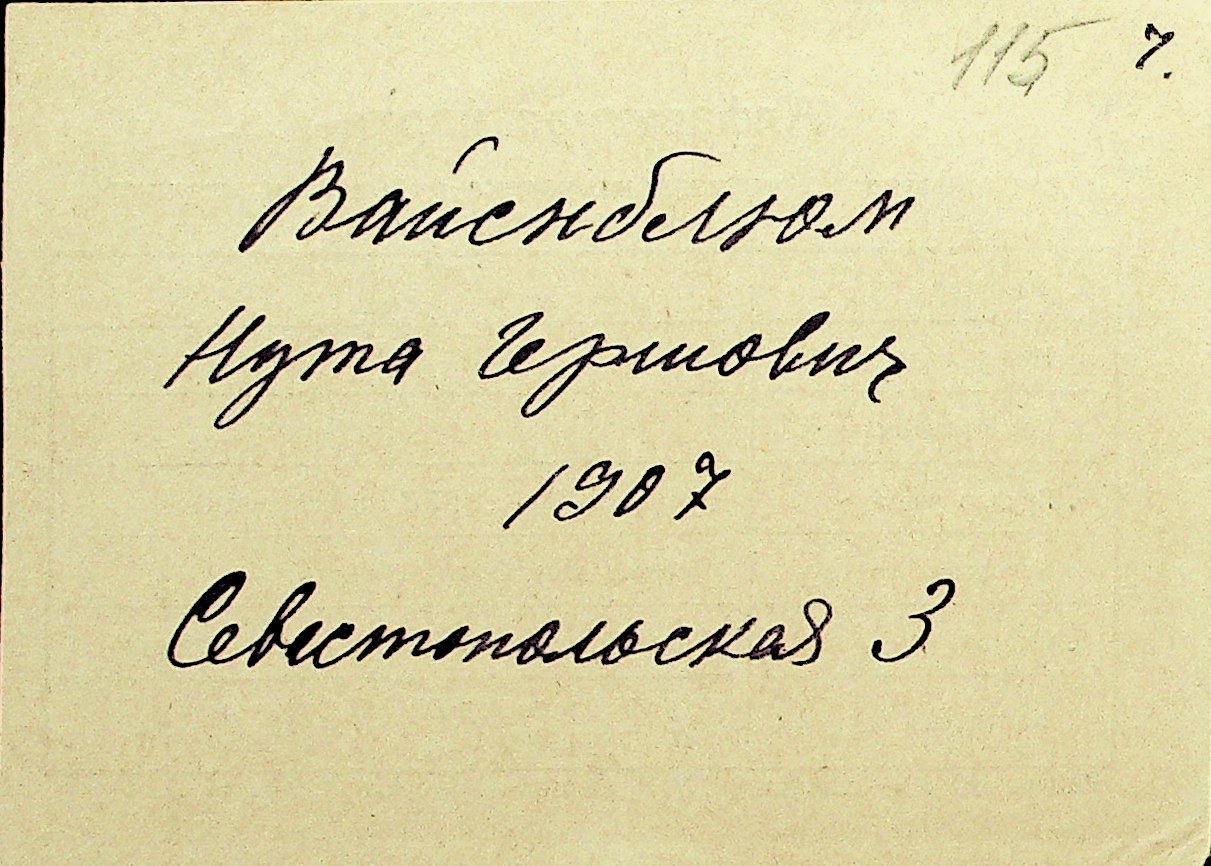 115 7.
Вайснблюм
Нута Гершович
1907
Севастопольская 3